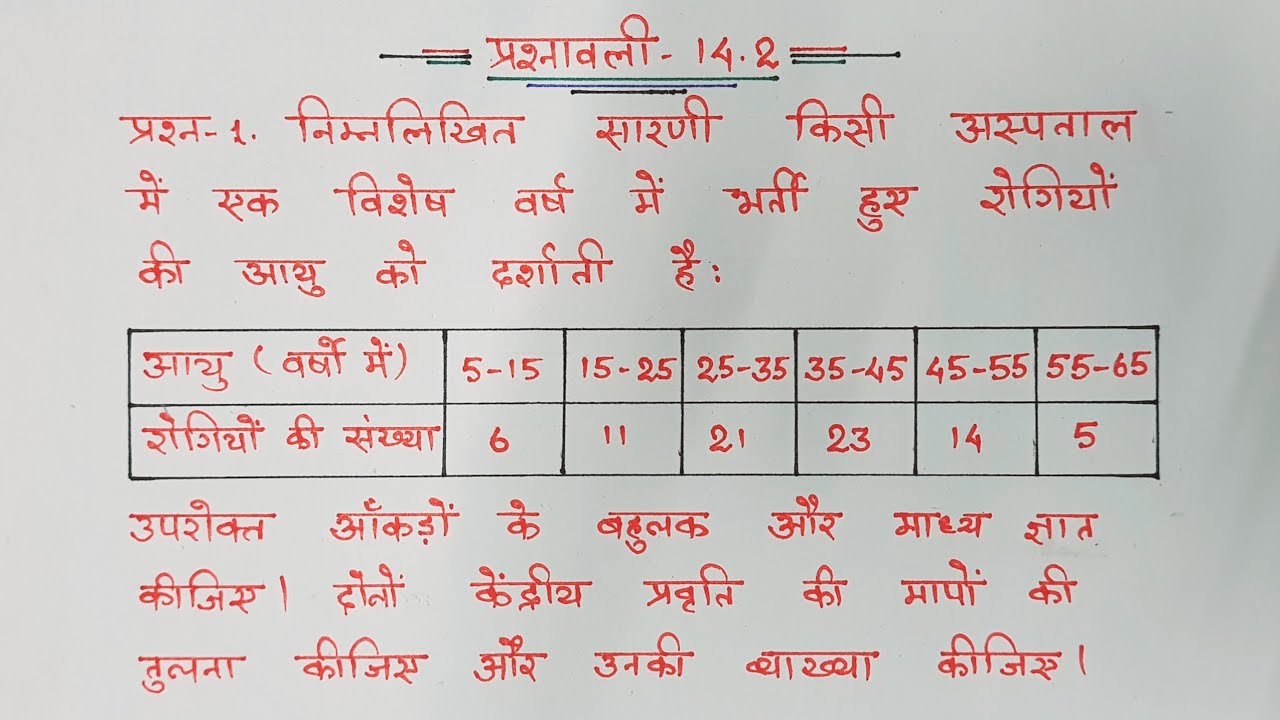 प्रश्नावली - 14.2
प्रश्न-1. निम्नलिखित सारणी किसी अस्पताल
में एक विशेष वर्ष में भर्ती हुए रोगियों
की आयु को दर्शाती है:
आयु (वर्षो में) 5-15 15-25 25-35 35-45 45-55 55-65
रोगियों की संख्या 6 11 21 23 14 5
उपरोक्त आँकड़ों के बहुलक और माध्य ज्ञात
कीजिए। दोनों केंद्रीय प्रवृति की मापों की
तुलना कीजिए और उनकी व्याख्या कीजिए।